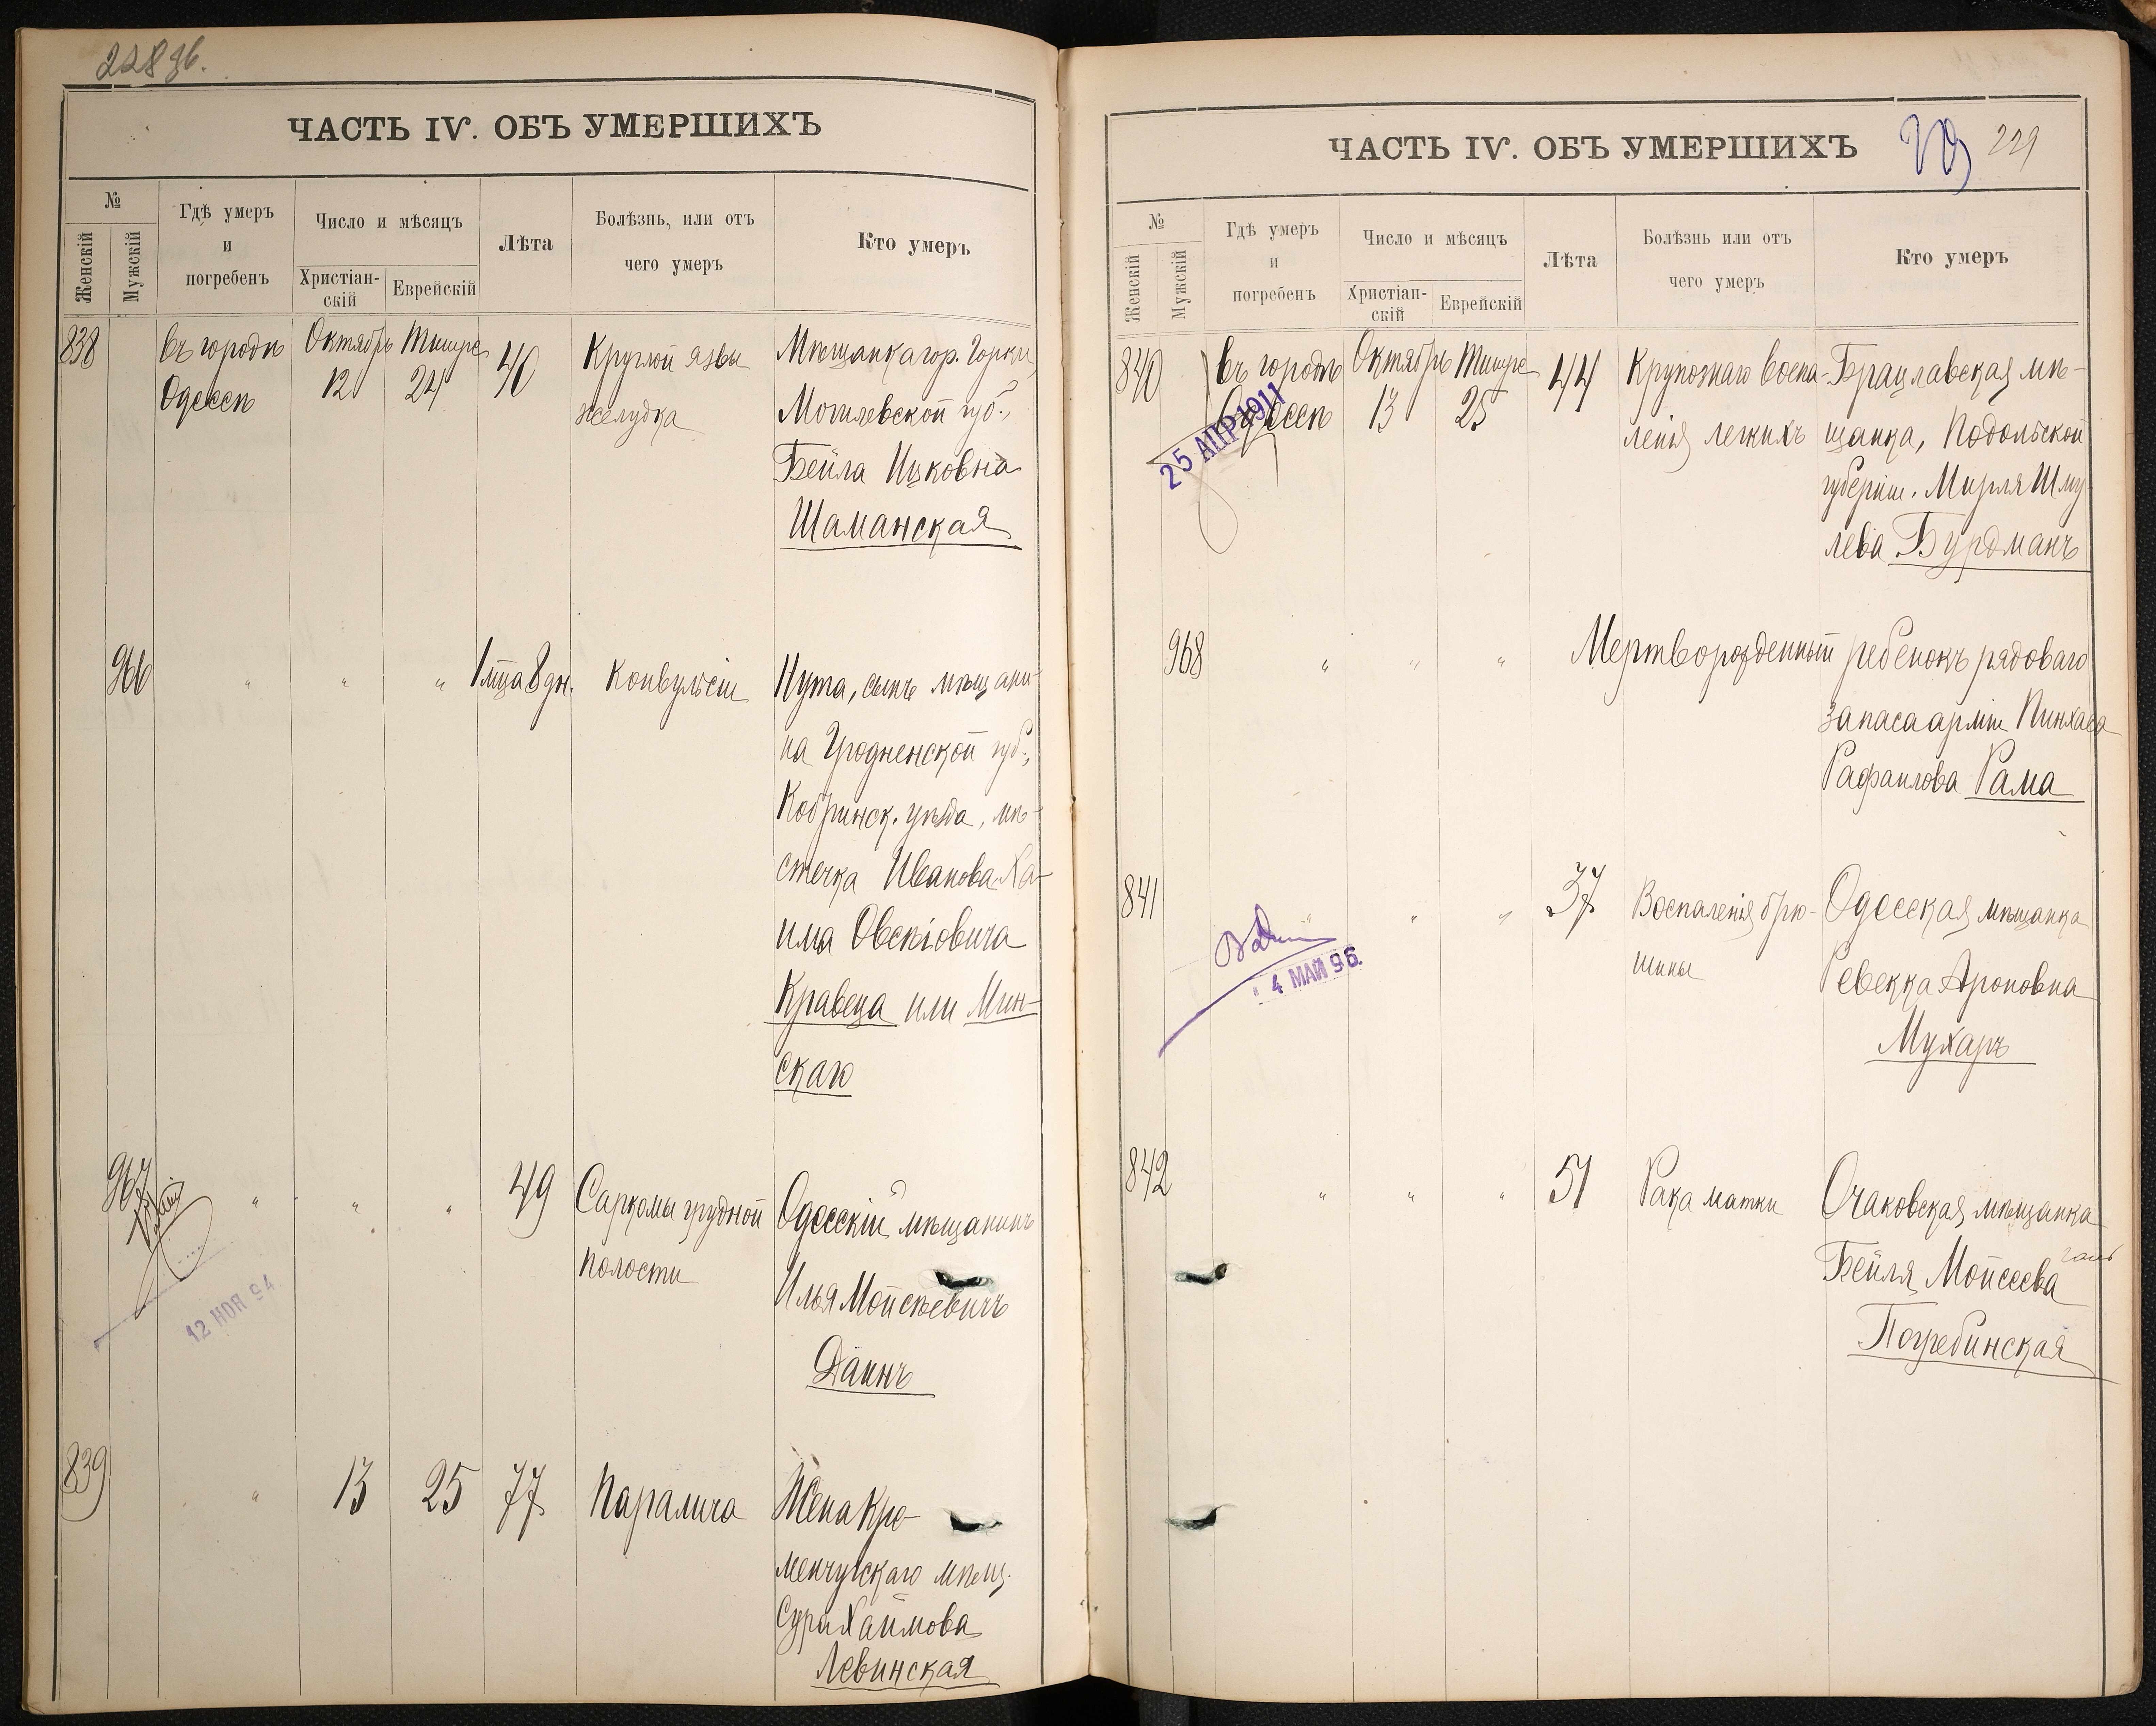 228 об.
ЧАСТЬ IV. ОБЪ УМЕРШИХЪ
№
Женскій
Мужскій
Гдѣ умеръ
и
погребенъ
Число и мѣсяцъ
Христіан-
скій
Еврейскій
Лѣта
Болѣзнь, или отъ
чего умеръ
Кто умеръ
838
въ городѣ
Одессѣ
Октябрь
12
Тишре
24
40
Круглой язвы
желудка
Мѣщанка гор. Горки,
Могилевской губ.,
Бейла Ицковна
Шаманская
966
" " "
1 мѣца 8 дн.
Конвульсіи
Нута, сынъ мѣщани-
на Гродненской губ.,
Кобринск. уѣзда, мѣ-
стечка Иванова Ха-
има Овсеіовича
Кравеца или Мин-
скаго
967
" " "
49
Саркомы грудной
полости
Одесскій мѣщанинъ
Илья Мойсѣевичъ
Даинъ
12 НОЯ 94
839
"
13
25
77
Паралича
Жена Кре-
менчугскаго мѣщ.
Сура Хаимова
Левинская
ЧАСТЬ IV. ОБЪ УМЕРШИХЪ
229
№
Женскій
Мужскій
Гдѣ умеръ
и
погребенъ
Число и мѣсяцъ
Христіан-
скій
Еврейскій
Лѣта
Болѣзнь или отъ
чего умеръ
Кто умеръ
840
въ городѣ
Одессѣ
25 АПР 1911
Октябрь
13
Тишре
25
44
Крупознаго воспа-
ленія легкихъ
Брацлавская мѣ-
щанка, Подольской
губерніи, Мирля Шму-
лева Бурдманъ
968
" " "
Мертворожденный ребенокъ рядоваго
запаса арміи Пинхаса
Рафаилова Рама
841
" " "
4 МАЙ 96
37
Воспаленія брю-
шины
Одесская мѣщанка
Ревекка Ароновна
Мухаръ
842
" " "
51
Рака матки
Очаковская мѣщанка
Бейля Мойсеева
Погребинская